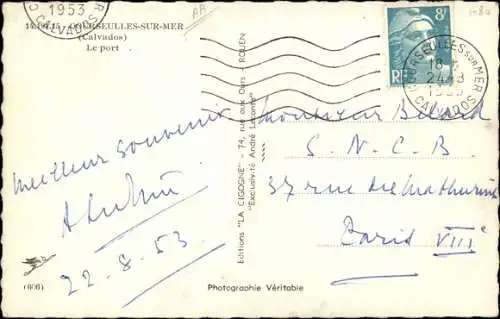 1953
CALVADOS
COURSEULLES-SUR-MER
(Calvados)
Le port
8F
RF
COURSEULLES SUR MER
18 H
24-8
1953
CALVADOS
Meilleur souvenir
22-8-53
(606)
Editions "LA CIGOGNE" - 74, rue aux Ours - ROUEN
"Exclusivité André Leconte"
Monsieur Belard
S.N.C.B.
37 rue des Mathurins
Paris VIIIe
Photographie Véritable